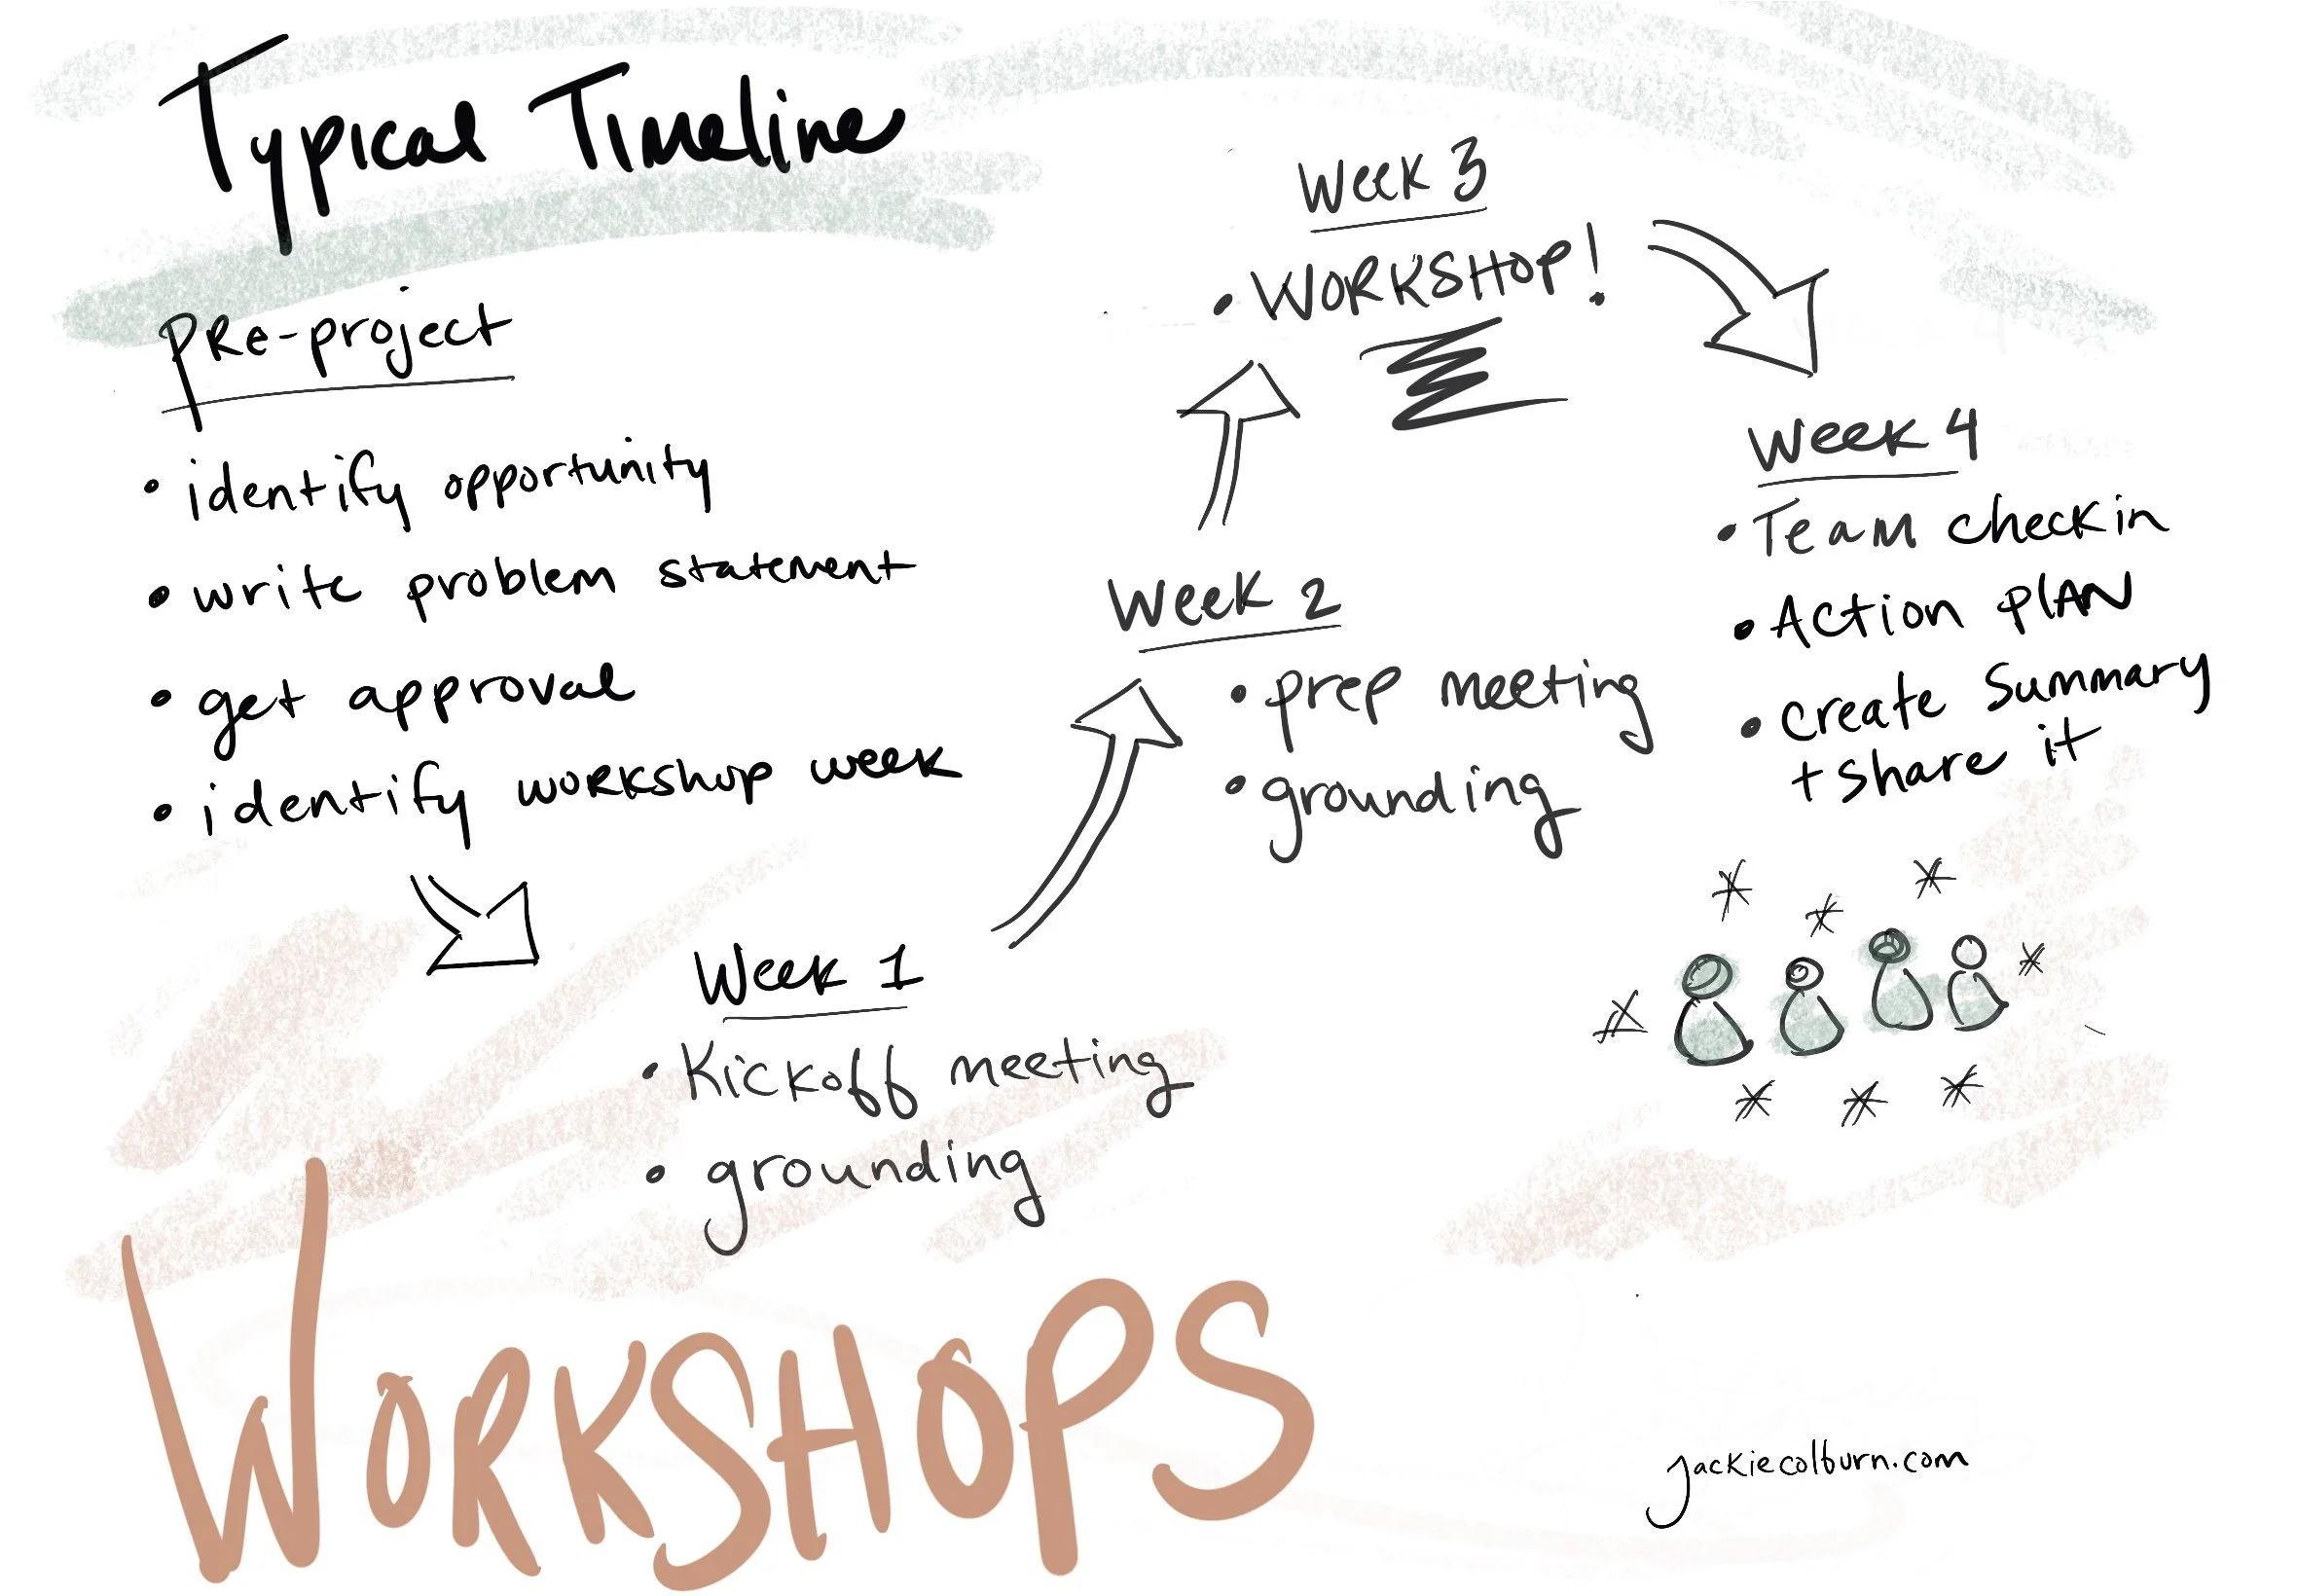 Typical Timeline
Pre-project
• identify opportunity
• write problem statement
• get approval
• identify workshop week
Week 1
• Kickoff meeting
• grounding
Week 2
• prep meeting
• grounding
Week 3
• WORKSHOP!
Week 4
• Team checkin
• Action plan
• create summary
+ share it
WORKSHOPS
jackiecolburn.com